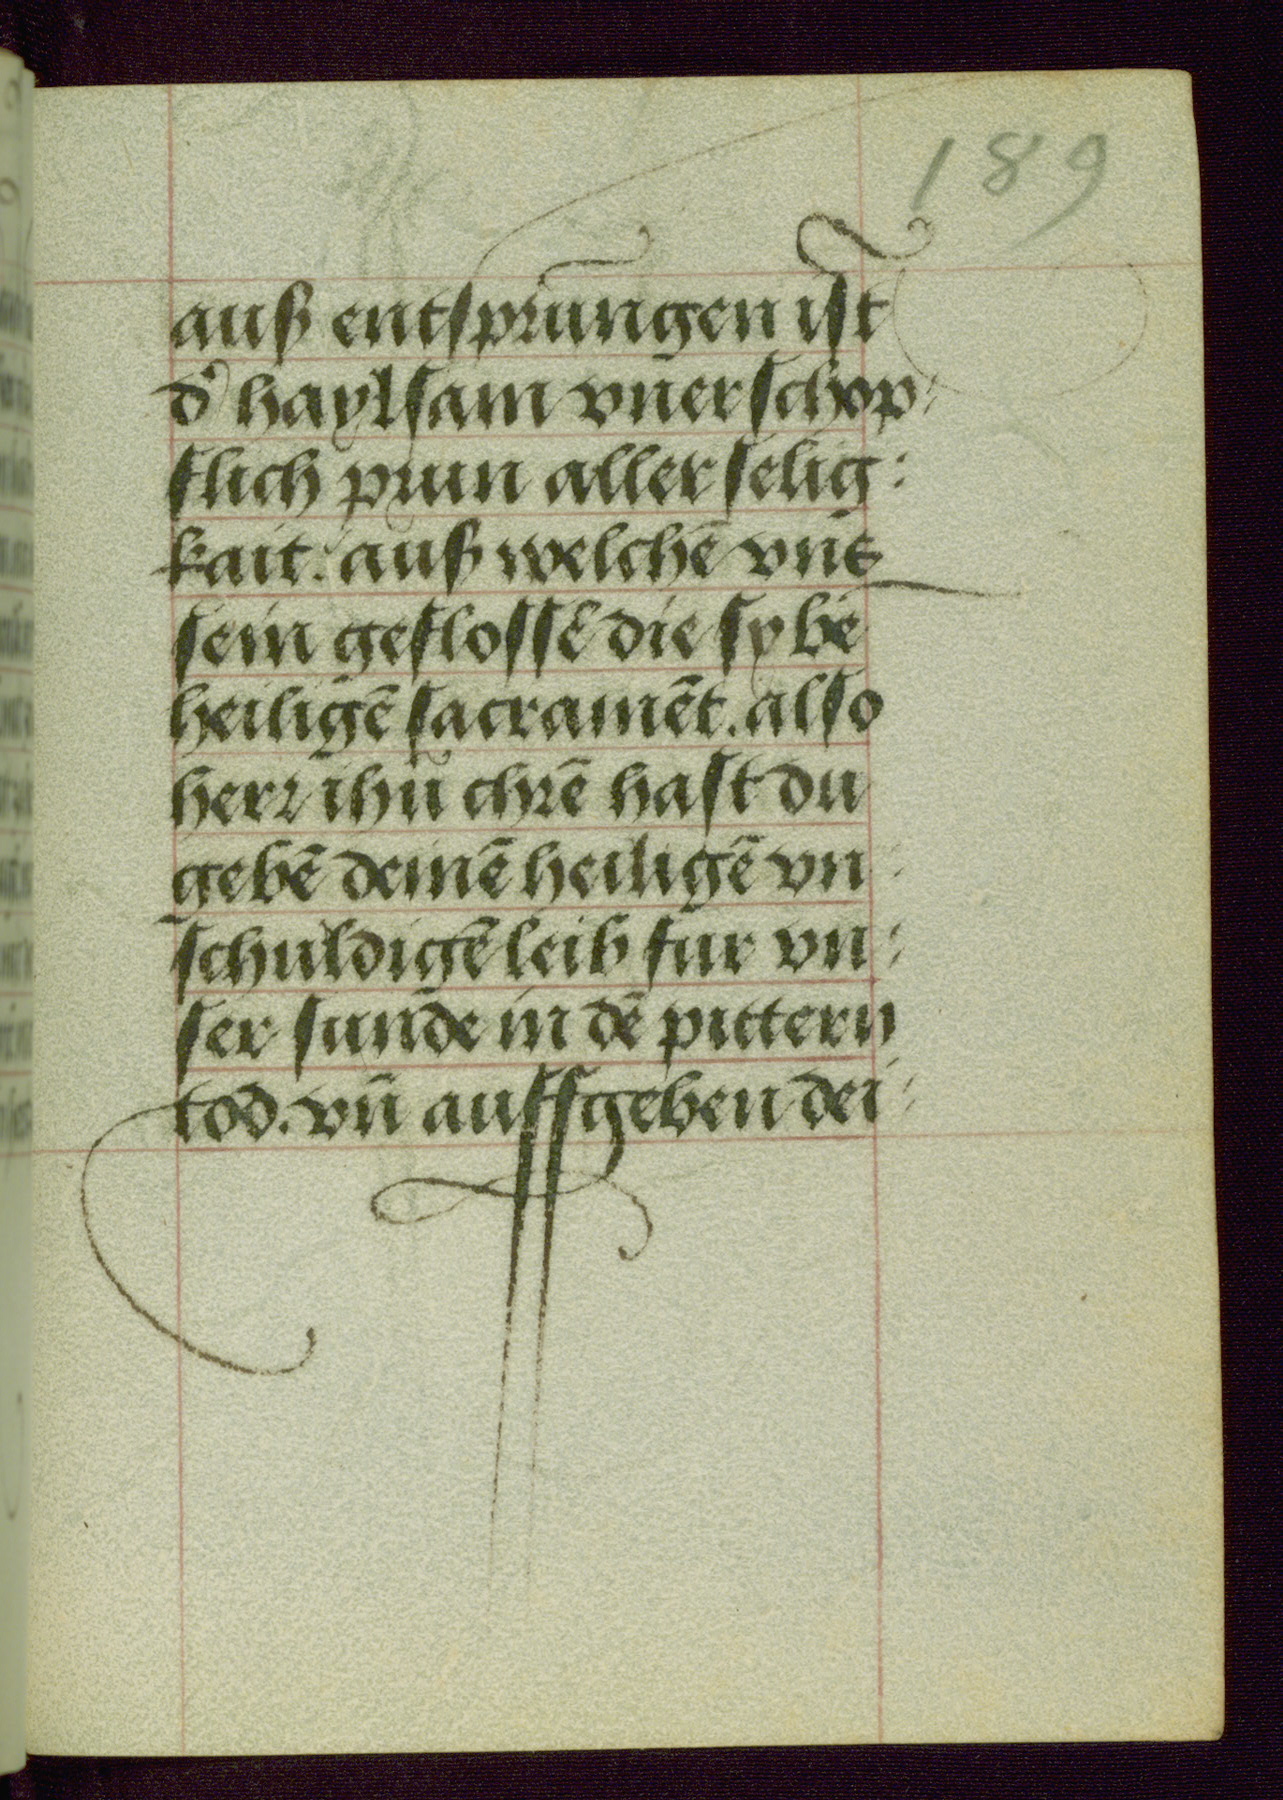 189
auß entsprungen ist
d' haylsam vnerschop-
flich prun aller selig:
kait. auß welchē vns
sein geflossē die sybē
heiligē sacramēt. also
herr ihū chrē hast du
gebē deinē heiligē vn-
schuldigē leib fur vn:
ser sunde in dē pittern
tod. vn̄ auffgeben dei-